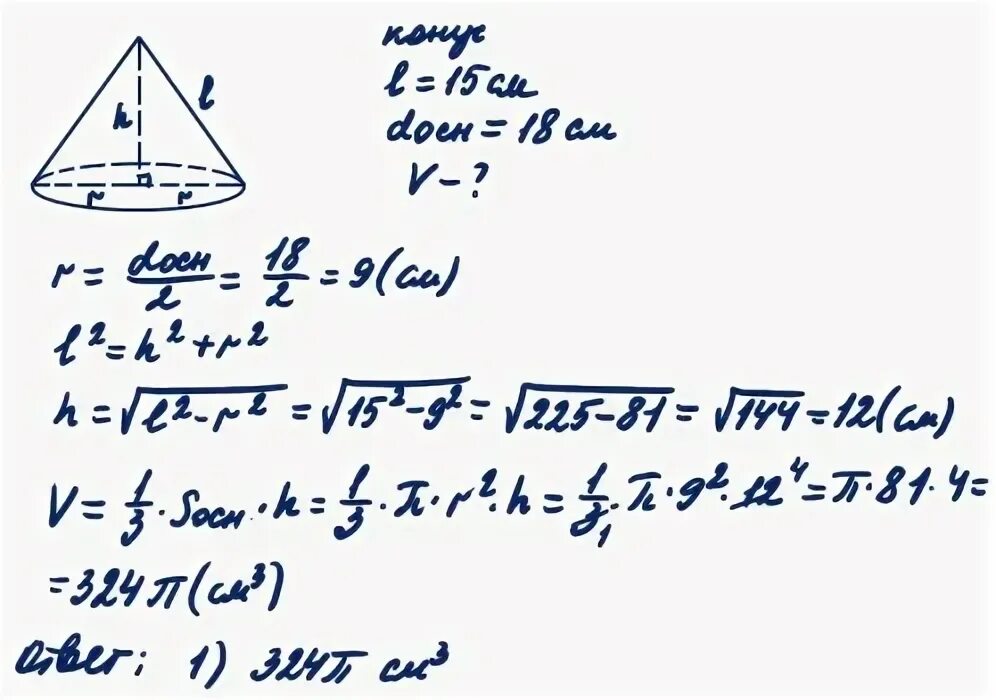 конус
l = 15 см
dосн = 18 см
V - ?
h l
r r
r = dосн/2 = 18/2 = 9 (см)
l² = h² + r²
h = √(l² - r²) = √(15² - 9²) = √(225 - 81) = √144 = 12 (см)
V = 1/3 · Sосн · h = 1/3 · π · r² · h = 1/3₁ · π · 9² · 12⁴ = π · 81 · 4 =
= 324 π (см³)
Ответ: 1) 324π см³